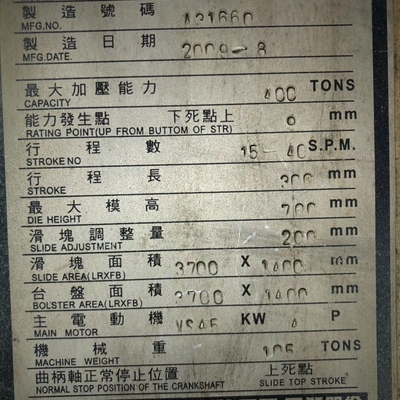 製造號碼 A31660
MFG.NO.
製造日期 2009-8
MFG.DATE.
最大加壓能力 400 TONS
CAPACITY
能力發生點 下死點上 9 mm
RATING POINT(UP FROM BUTTOM OF STR)
行程數 15-40 S.P.M.
STROKE NO
行程長 300 mm
STROKE
最大模高 700 mm
DIE HEIGHT
滑塊調整量 200 mm
SLIDE ADJUSTMENT
滑塊面積 3700 X 1400 mm
SLIDE AREA(LRXFB)
台盤面積 3700 X 1400 mm
BOLSTER AREA(LRXFB)
主電動機 VS45 KW 4 P
MAIN MOTOR
機械重 105 TONS
MACHINE WEIGHT
曲柄軸正常停止位置 上死點
NORMAL STOP POSITION OF THE CRANKSHAFT SLIDE TOP STROKE